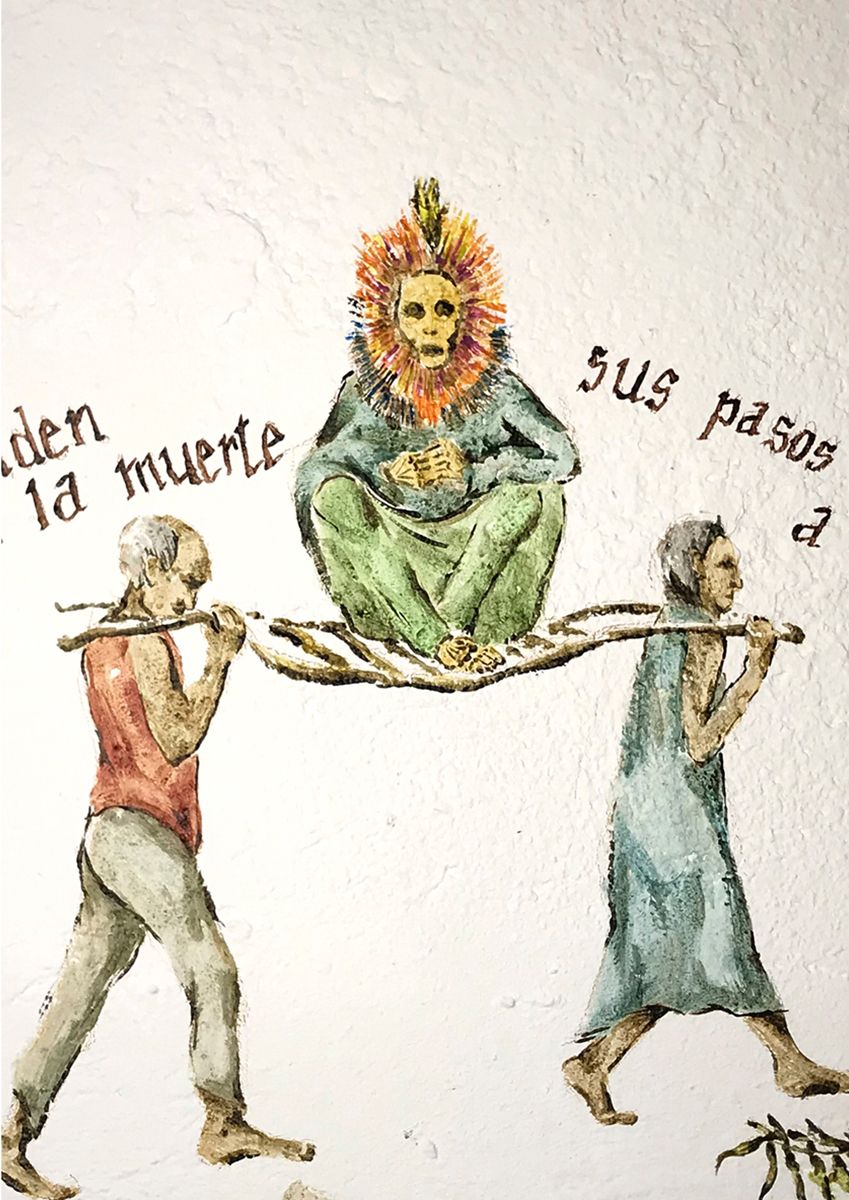 den
la muerte
sus pasos
a